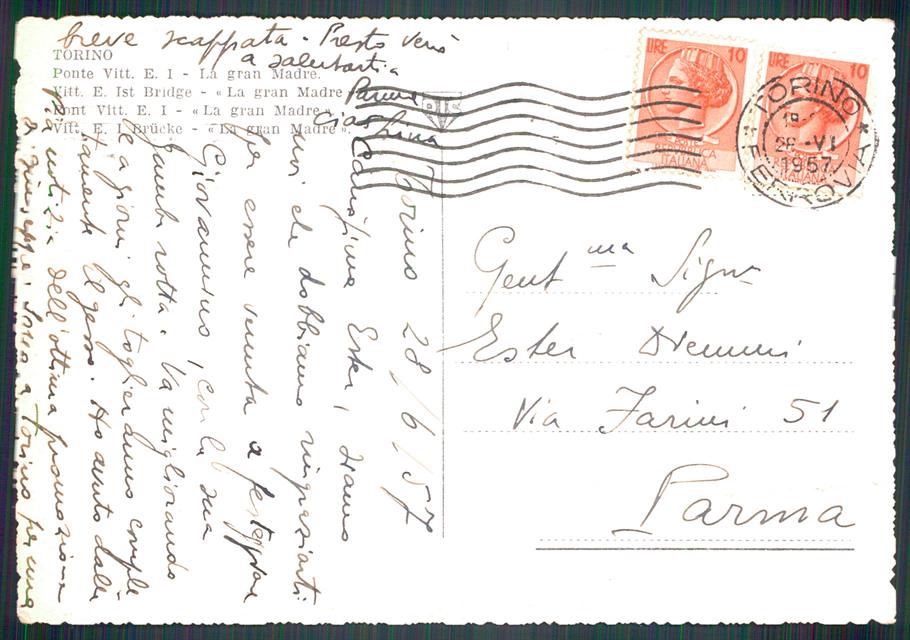 TORINO
Ponte Vitt. E. I - La gran Madre.
Vitt. E. Ist Bridge - « La gran Madre ».
Pont Vitt. E. I - « La gran Madre ».
Vitt. E. I Brücke - « La gran Madre ».
LIRE 10
POSTE
REPUBBLICA
ITALIANA
LIRE 10
TORINO
FERROVIA
28 -VI
1957
Gent ma Sign
Ester
Via Farini 51
Parma
Torino 28/6/57
Carissima Ester, siamo
noi che dobbiamo ringraziarti
essere venuta a festeggiare
Giovannino, con la sua
gamba rotta. Va migliorando
e a giorni gli toglieranno comple
tamente il gesso. Ho avuto dalle
notizia dell'ottima promozione
di Giuseppe. Sono a Torino per una
breve scappata. Presto verrò
a salutarti.
Ciao